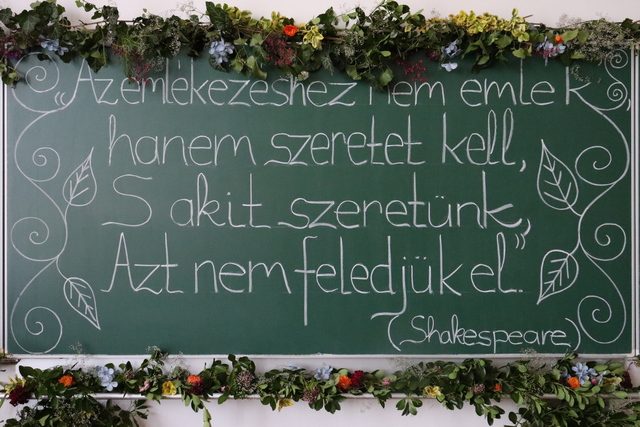 „Az emlékezéshez nem emlék
hanem szeretet kell,
S akit szeretünk,
Azt nem feledjük el.”
(Shakespeare)